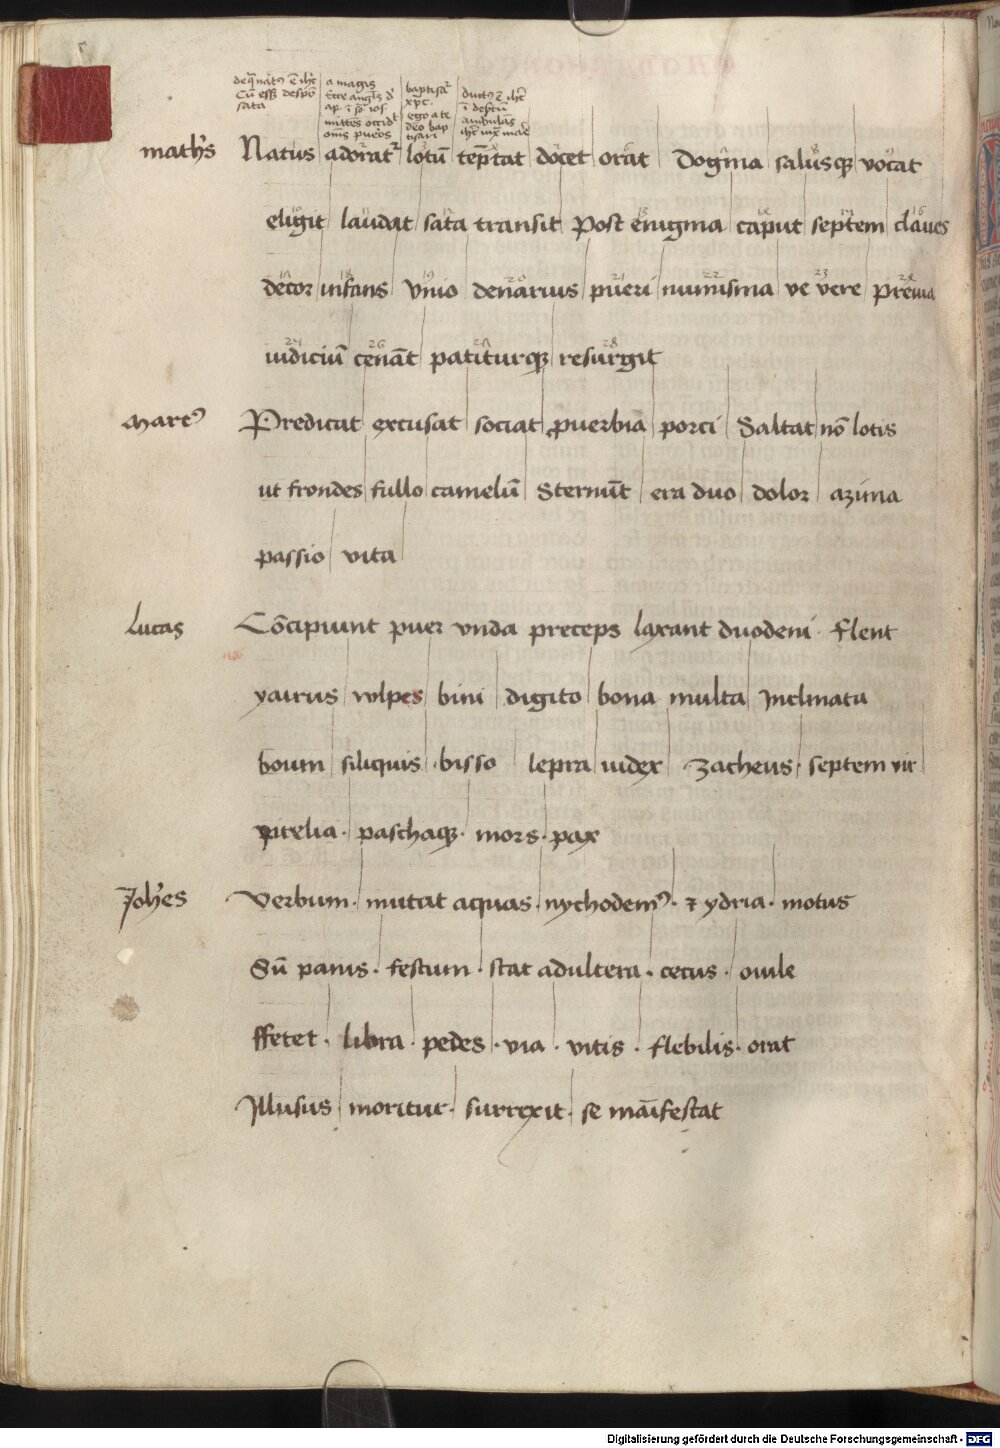 de q̄ nat⁹ ē ih̄c
Cū ess; despō
sata
a magis
Ecce angl̄s d̄
ap. ī sō ios.
mittēs occid
om̄s pueros
baptisat᷑
xp̄c.
ego a te
deo bap
tisari
duct⁹ ē ih̄c
ī desertū
ambulās
ih̄c iux̄ mare
math's Natus adorat᷑ lotū tēptat docet orat Dogma salusq; vocat
eligit laudat sata transit Post enigma caput septem claues
10 11 13 15 16
decor infans Vnio denarius pueri numisma ve vere premia
17 18 19 20 21 22 23 24
iudiciū cenāt patiturq; resurgit
26 27 28
Marc⁹ Predicat excusat sociat ꝓuerbia porci Saltat nō lotis
ut frondes fullo camelū Sternūt era duo dolor azima
passio vita
Lucas Cōcipiunt puer vnda preceps laxant duodeni · flent
yairus vulpes bini digito bona multa Inclinata
boum siliquis · bisso lepra iudex Zacheus · septem vir
paschaq; · mors · pax
Joh'es Verbum · mutat aquas · nychodem⁹ · ⁊ ydria · motus
Sū panis · festum · stat adultera · cecus · ouile
ffetet · libra · pedes · via · vitis · flebilis · orat
Illusus moritur · surrexit · se māifestat
Digitalisierung gefördert durch die Deutsche Forschungsgemeinschaft - DFG